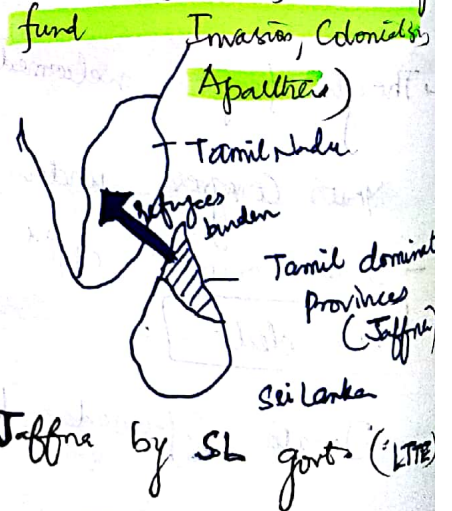 fund Invasion, Colonialism,
Apartheid)
Tamil Nadu
Refugees
burden
Tamil dominat
Provinces
(Jaffna)
Sri Lanka
Jaffna by SL govts (∵LTTE)